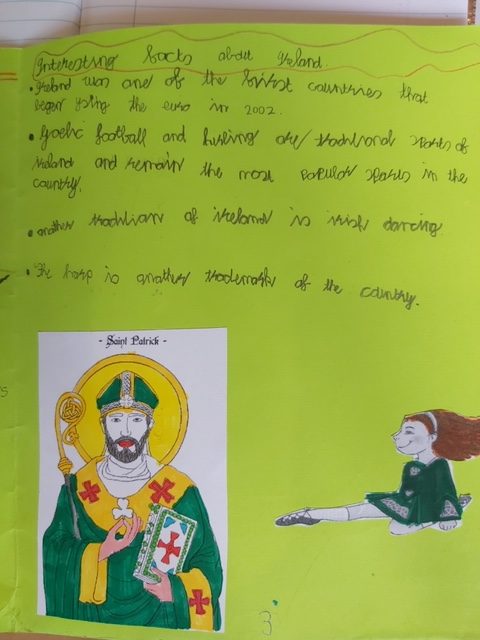 Interesting facts about Ireland.
• Ireland was one of the first countries that
began using the euro in 2002.
• Gaelic football and hurling are traditional sports of
Ireland and remain the most popular sports in the
country.
• another tradition of ireland is irish dancing
• The harp is another trademark of the country.
- Saint Patrick -
3